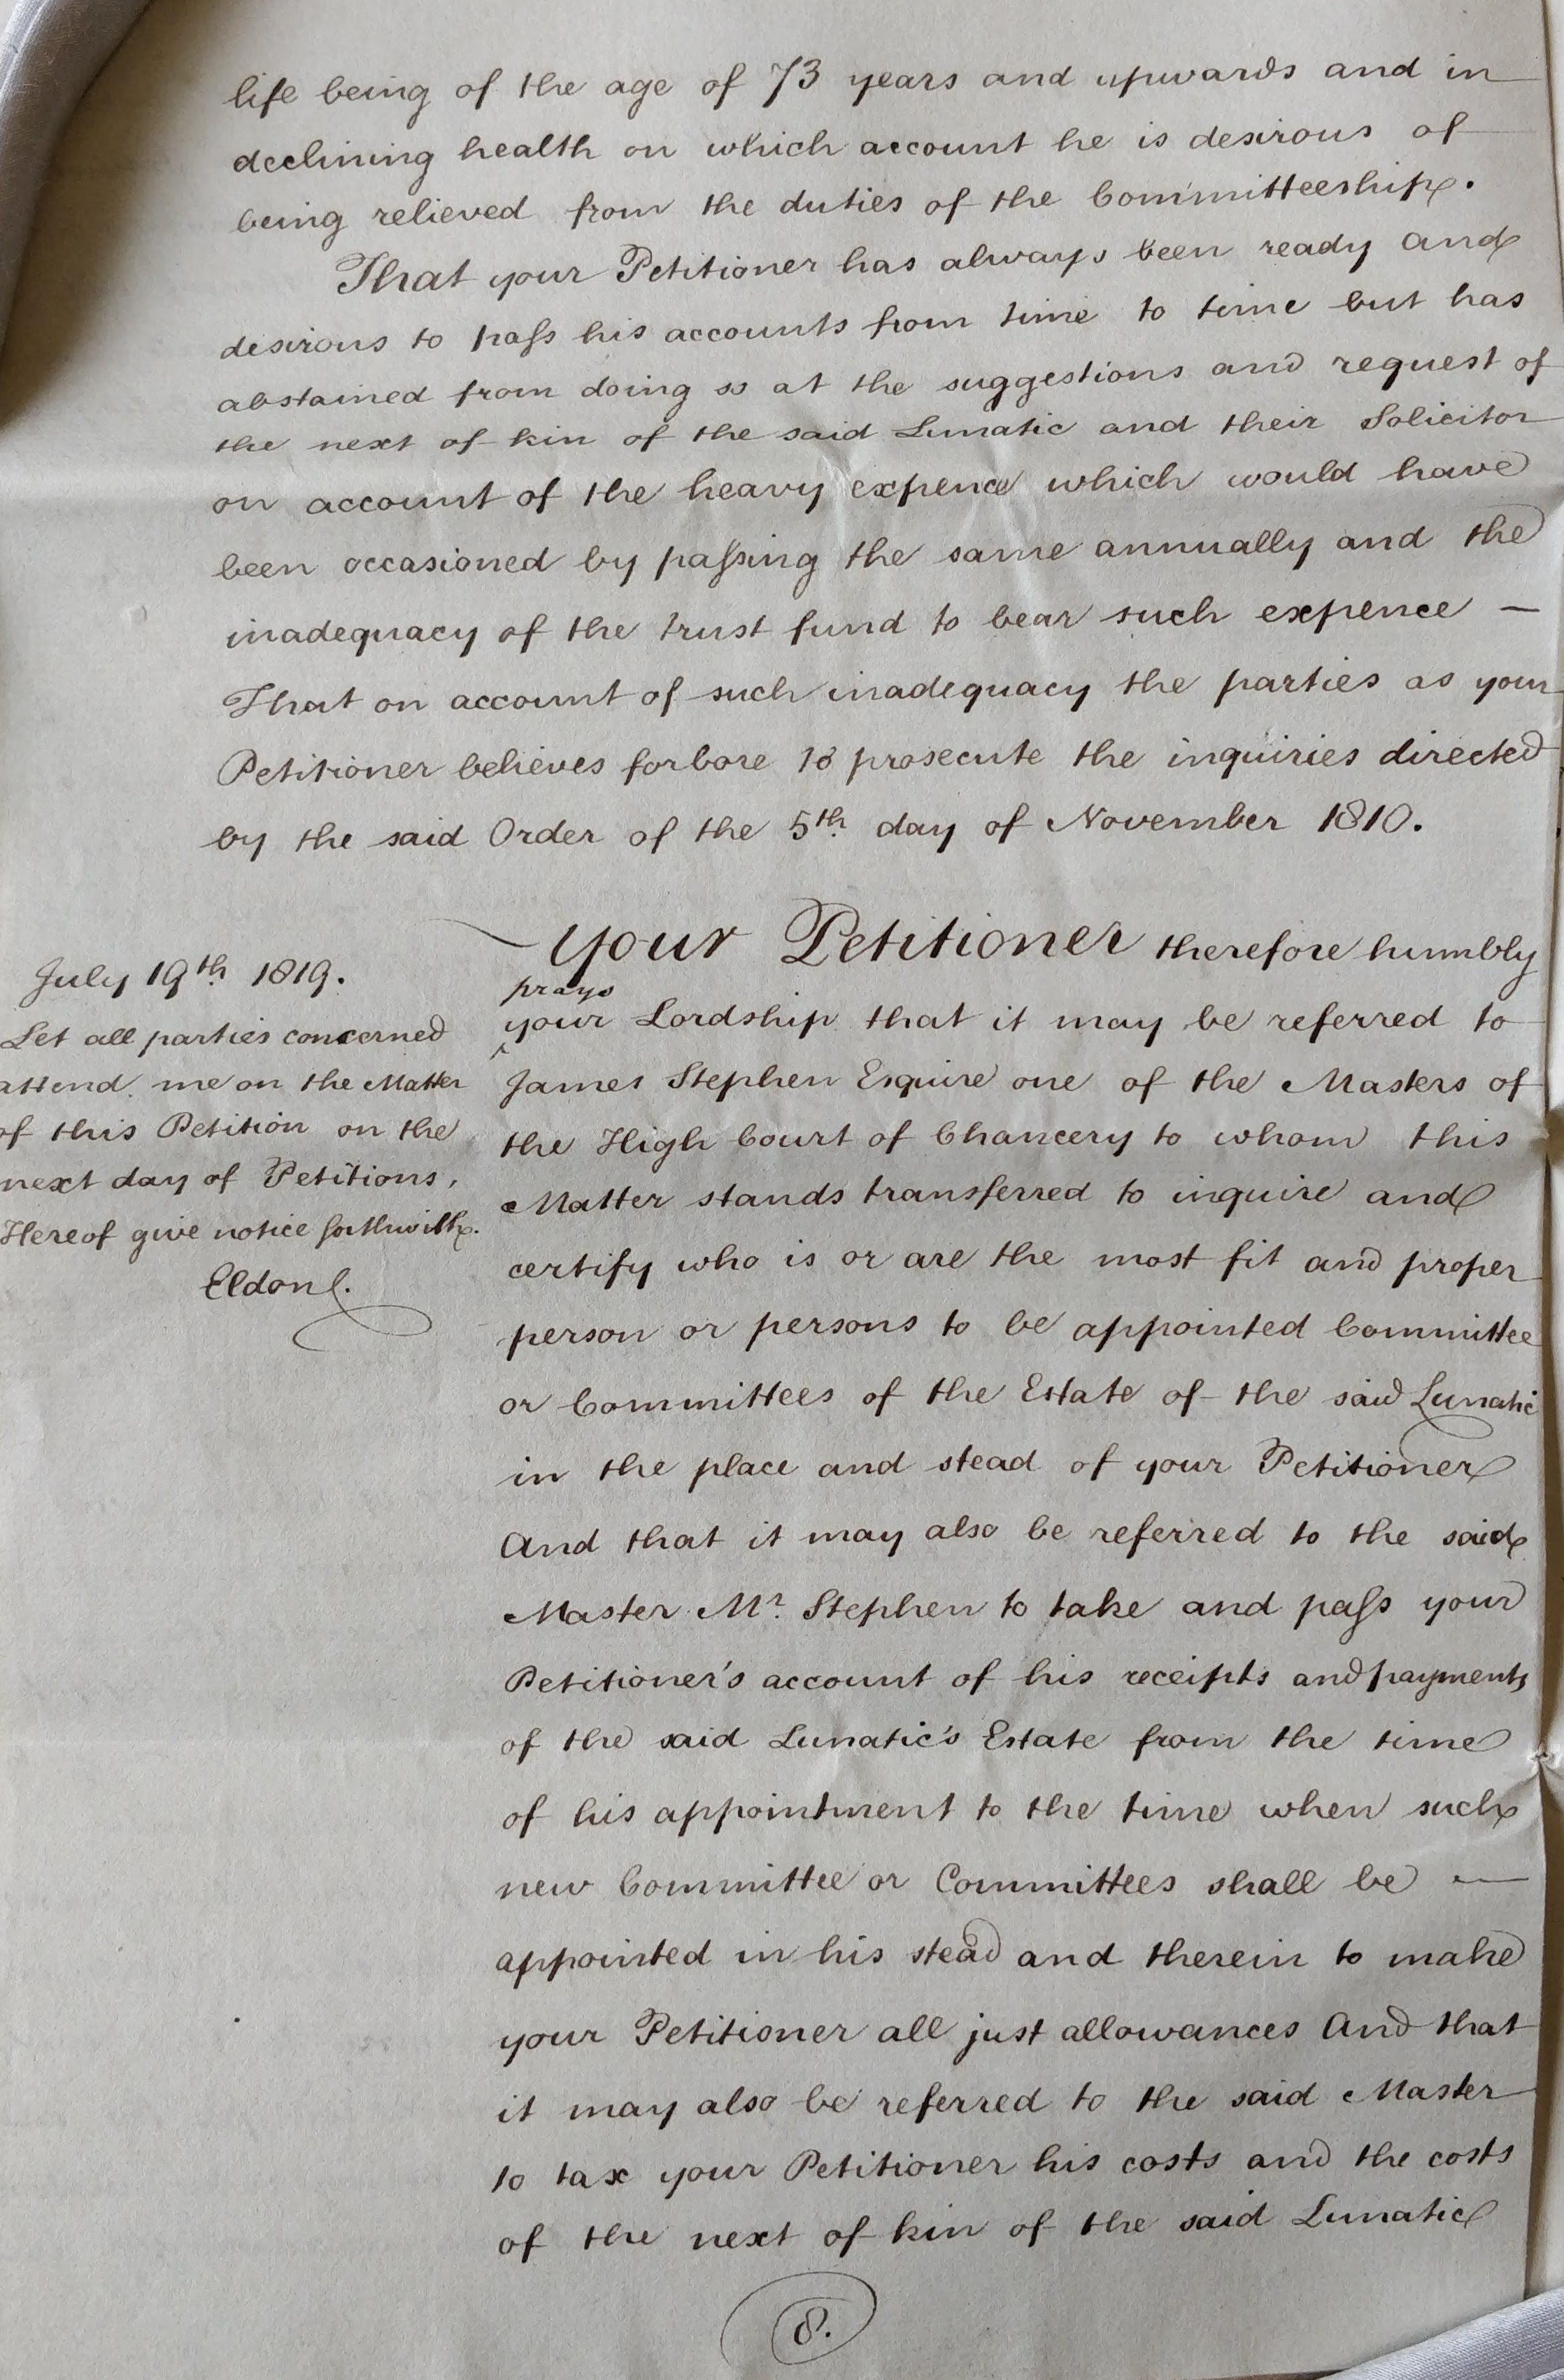 life being of the age of 73 years and upwards and in
declining health on which account he is desirous of
being relieved from the duties of the Committeeship.
That your Petitioner has always been ready and
desirous to paſs his accounts from time to time but has
abstained from doing so at the suggestions and request of
the next of kin of the said Lunatic and their Solicitor
on account of the heavy expence which would have
been occasioned by paſsing the same annually and the
inadequacy of the trust fund to bear such expence —
That on account of such inadequacy the parties as your
Petitioner believes forbore to prosecute the inquiries directed
by the said Order of the 5th. day of November 1810.
Your Petitioner therefore humbly
prays
your Lordship that it may be referred to
James Stephen Esquire one of the Masters of
the High Court of Chancery to whom this
Matter stands transferred to inquire and
certify who is or are the most fit and proper
person or persons to be appointed Committee
or Committees of the Estate of the said Lunatic
in the place and stead of your Petitioner
And that it may also be referred to the said
Master Mr. Stephen to take and paſs your
Petitioner's account of his receipts and payments
of the said Lunatic's Estate from the time
of his appointment to the time when such
new Committee or Committees shall be —
appointed in his stead and therein to make
your Petitioner all just allowances And that
it may also be referred to the said Master
to tax your Petitioner his costs and the costs
of the next of kin of the said Lunatic
July 19th. 1819.
Let all parties concerned
attend me on the Matter
of this Petition on the
next day of Petitions,
Hereof give notice forthwith.
Eldon C.
8.